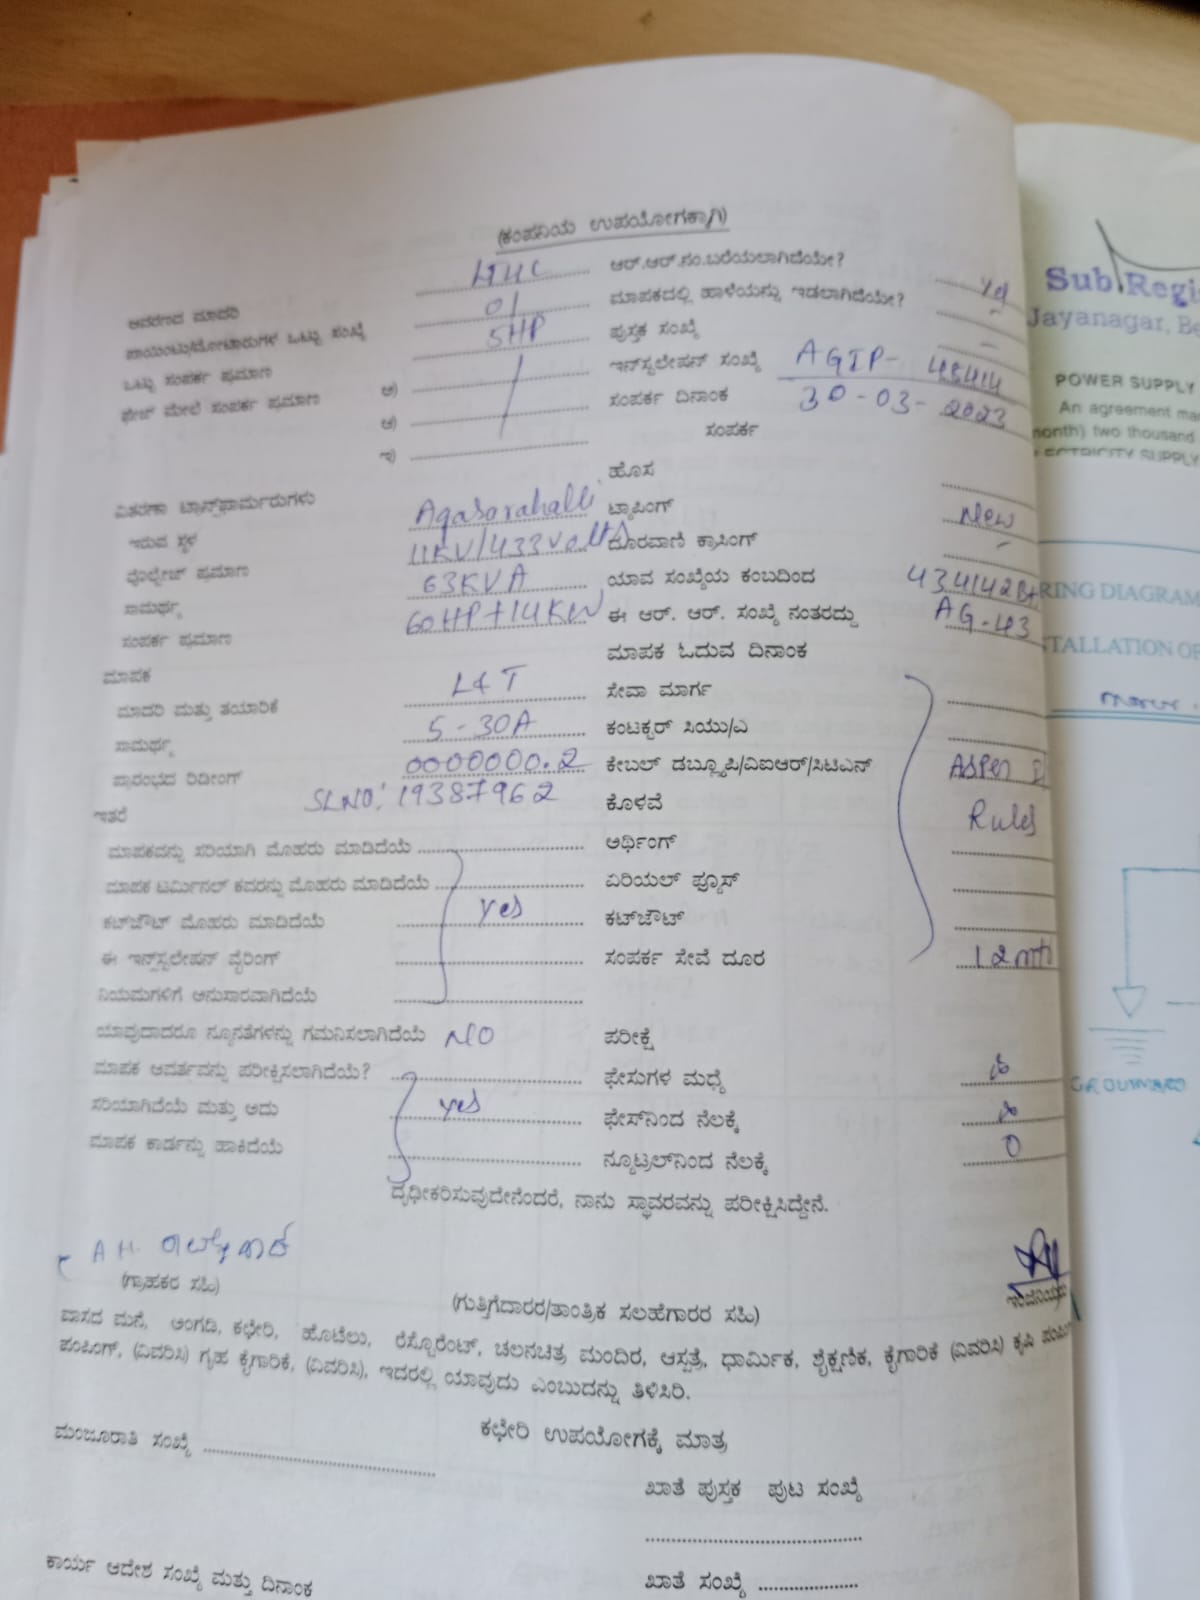 (ಕಂಪನಿಯ ಉಪಯೋಗಕ್ಕಾಗಿ)
ಆವರಣದ ಮಾದರಿ
ಪಾಯಿಂಟು/ಮೋಟಾರುಗಳ ಒಟ್ಟು ಸಂಖ್ಯೆ 01
ಒಟ್ಟು ಸಂಪರ್ಕ ಪ್ರಮಾಣ 5HP
ಫೇಜ್ ಮೇಲೆ ಸಂಪರ್ಕ ಪ್ರಮಾಣ ಅ)
ಆ)
ಇ)
ವಿತರಣಾ ಟ್ರಾನ್ಸ್‌ಫಾರ್ಮರುಗಳು
ಇರುವ ಸ್ಥಳ Agasarahalli
ವೊಲ್ಟೇಜ್ ಪ್ರಮಾಣ 11KV/433volts
ಸಾಮರ್ಥ್ಯ 63KVA
ಸಂಪರ್ಕ ಪ್ರಮಾಣ 60HP+14KW
ಮಾಪಕ
ಮಾದರಿ ಮತ್ತು ತಯಾರಿಕೆ L&T
ಸಾಮರ್ಥ್ಯ 5-30A
ಪ್ರಾರಂಭದ ರಿಡಿಂಗ್ 0000000.2
ಇತರೆ SLNO: 19387962
ಮಾಪಕವನ್ನು ಸರಿಯಾಗಿ ಮೊಹರು ಮಾಡಿದೆಯೆ
ಮಾಪಕ ಟರ್ಮಿನಲ್ ಕವರನ್ನು ಮೊಹರು ಮಾಡಿದೆಯೆ
ಕಟ್‌ಔಟ್ ಮೊಹರು ಮಾಡಿದೆಯೆ yes
ಈ ಇನ್ಸ್‌ಸ್ಟಲೇಷನ್ ವೈರಿಂಗ್
ನಿಯಮಗಳಿಗೆ ಅನುಸಾರವಾಗಿದೆಯೆ
ಯಾವುದಾದರೂ ನ್ಯೂನತೆಗಳನ್ನು ಗಮನಿಸಲಾಗಿದೆಯೆ NO
ಮಾಪಕ ಆವರ್ತವನ್ನು ಪರೀಕ್ಷಿಸಲಾಗಿದೆಯೆ?
ಸರಿಯಾಗಿದೆಯೆ ಮತ್ತು ಅದು yes
ಮಾಪಕ ಕಾರ್ಡನ್ನು ಹಾಕಿದೆಯೆ
ಆರ್.ಆರ್.ನಂ.ಬರೆಯಲಾಗಿದೆಯೇ? yes
ಮಾಪಕದಲ್ಲಿ ಹಾಳೆಯನ್ನು ಇಡಲಾಗಿದೆಯೇ? -
ಪುಸ್ತಕ ಸಂಖ್ಯೆ -
ಇನ್‌ಸ್ಟಲೇಷನ್ ಸಂಖ್ಯೆ AGIP-
ಸಂಪರ್ಕ ದಿನಾಂಕ 30-03-2023
ಸಂಪರ್ಕ
ಹೊಸ
ಟ್ಯಾಪಿಂಗ್ New
ದೂರವಾಣಿ ಕ್ರಾಸಿಂಗ್ -
ಯಾವ ಸಂಖ್ಯೆಯ ಕಂಬದಿಂದ
ಈ ಆರ್. ಆರ್. ಸಂಖ್ಯೆ ನಂತರದ್ದು AG-43
ಮಾಪಕ ಓದುವ ದಿನಾಂಕ
ಸೇವಾ ಮಾರ್ಗ
ಕಂಟಕ್ಟರ್ ಸಿಯು/ಎ
ಕೇಬಲ್ ಡಬ್ಲ್ಯೂಪಿ/ವಿಐಆರ್/ಸಿಟಿಎನ್ ASPer
ಕೊಳವೆ Rules
ಅರ್ಥಿಂಗ್
ಏರಿಯಲ್ ಫ್ಯೂಸ್
ಕಟ್‌ಔಟ್
ಸಂಪರ್ಕ ಸೇವೆ ದೂರ
ಪರೀಕ್ಷೆ
ಫೇಸುಗಳ ಮಧ್ಯೆ
ಫೇಸ್‌ನಿಂದ ನೆಲಕ್ಕೆ
ನ್ಯೂಟ್ರಲ್‌ನಿಂದ ನೆಲಕ್ಕೆ 0
ದೃಢೀಕರಿಸುವುದೇನೆಂದರೆ, ನಾನು ಸ್ಥಾವರವನ್ನು ಪರೀಕ್ಷಿಸಿದ್ದೇನೆ.
(ಗ್ರಾಹಕರ ಸಹಿ)
(ಗುತ್ತಿಗೆದಾರರ/ತಾಂತ್ರಿಕ ಸಲಹೆಗಾರರ ಸಹಿ)
ವಾಸದ ಮನೆ, ಅಂಗಡಿ, ಕಛೇರಿ, ಹೊಟೆಲು, ರೆಸ್ಟೋರೆಂಟ್, ಚಲನಚಿತ್ರ ಮಂದಿರ, ಆಸ್ಪತ್ರೆ, ಧಾರ್ಮಿಕ, ಶೈಕ್ಷಣಿಕ, ಕೈಗಾರಿಕೆ (ವಿವರಿಸಿ) ಕೃಷಿ
ಪಂಪಿಂಗ್, (ವಿವರಿಸಿ) ಗೃಹ ಕೈಗಾರಿಕೆ, (ವಿವರಿಸಿ), ಇದರಲ್ಲಿ ಯಾವುದು ಎಂಬುದನ್ನು ತಿಳಿಸಿರಿ.
ಕಛೇರಿ ಉಪಯೋಗಕ್ಕೆ ಮಾತ್ರ
ಮಂಜೂರಾತಿ ಸಂಖ್ಯೆ
ಖಾತೆ ಪುಸ್ತಕ ಪುಟ ಸಂಖ್ಯೆ
ಕಾರ್ಯ ಆದೇಶ ಸಂಖ್ಯೆ ಮತ್ತು ದಿನಾಂಕ
ಖಾತೆ ಸಂಖ್ಯೆ
Sub Regi
Jayanagar, Be
POWER SUPPLY
An agreement ma
month) two thousand
ECTRICITY SUPPLY
RING DIAGRAM
TALLATION OF